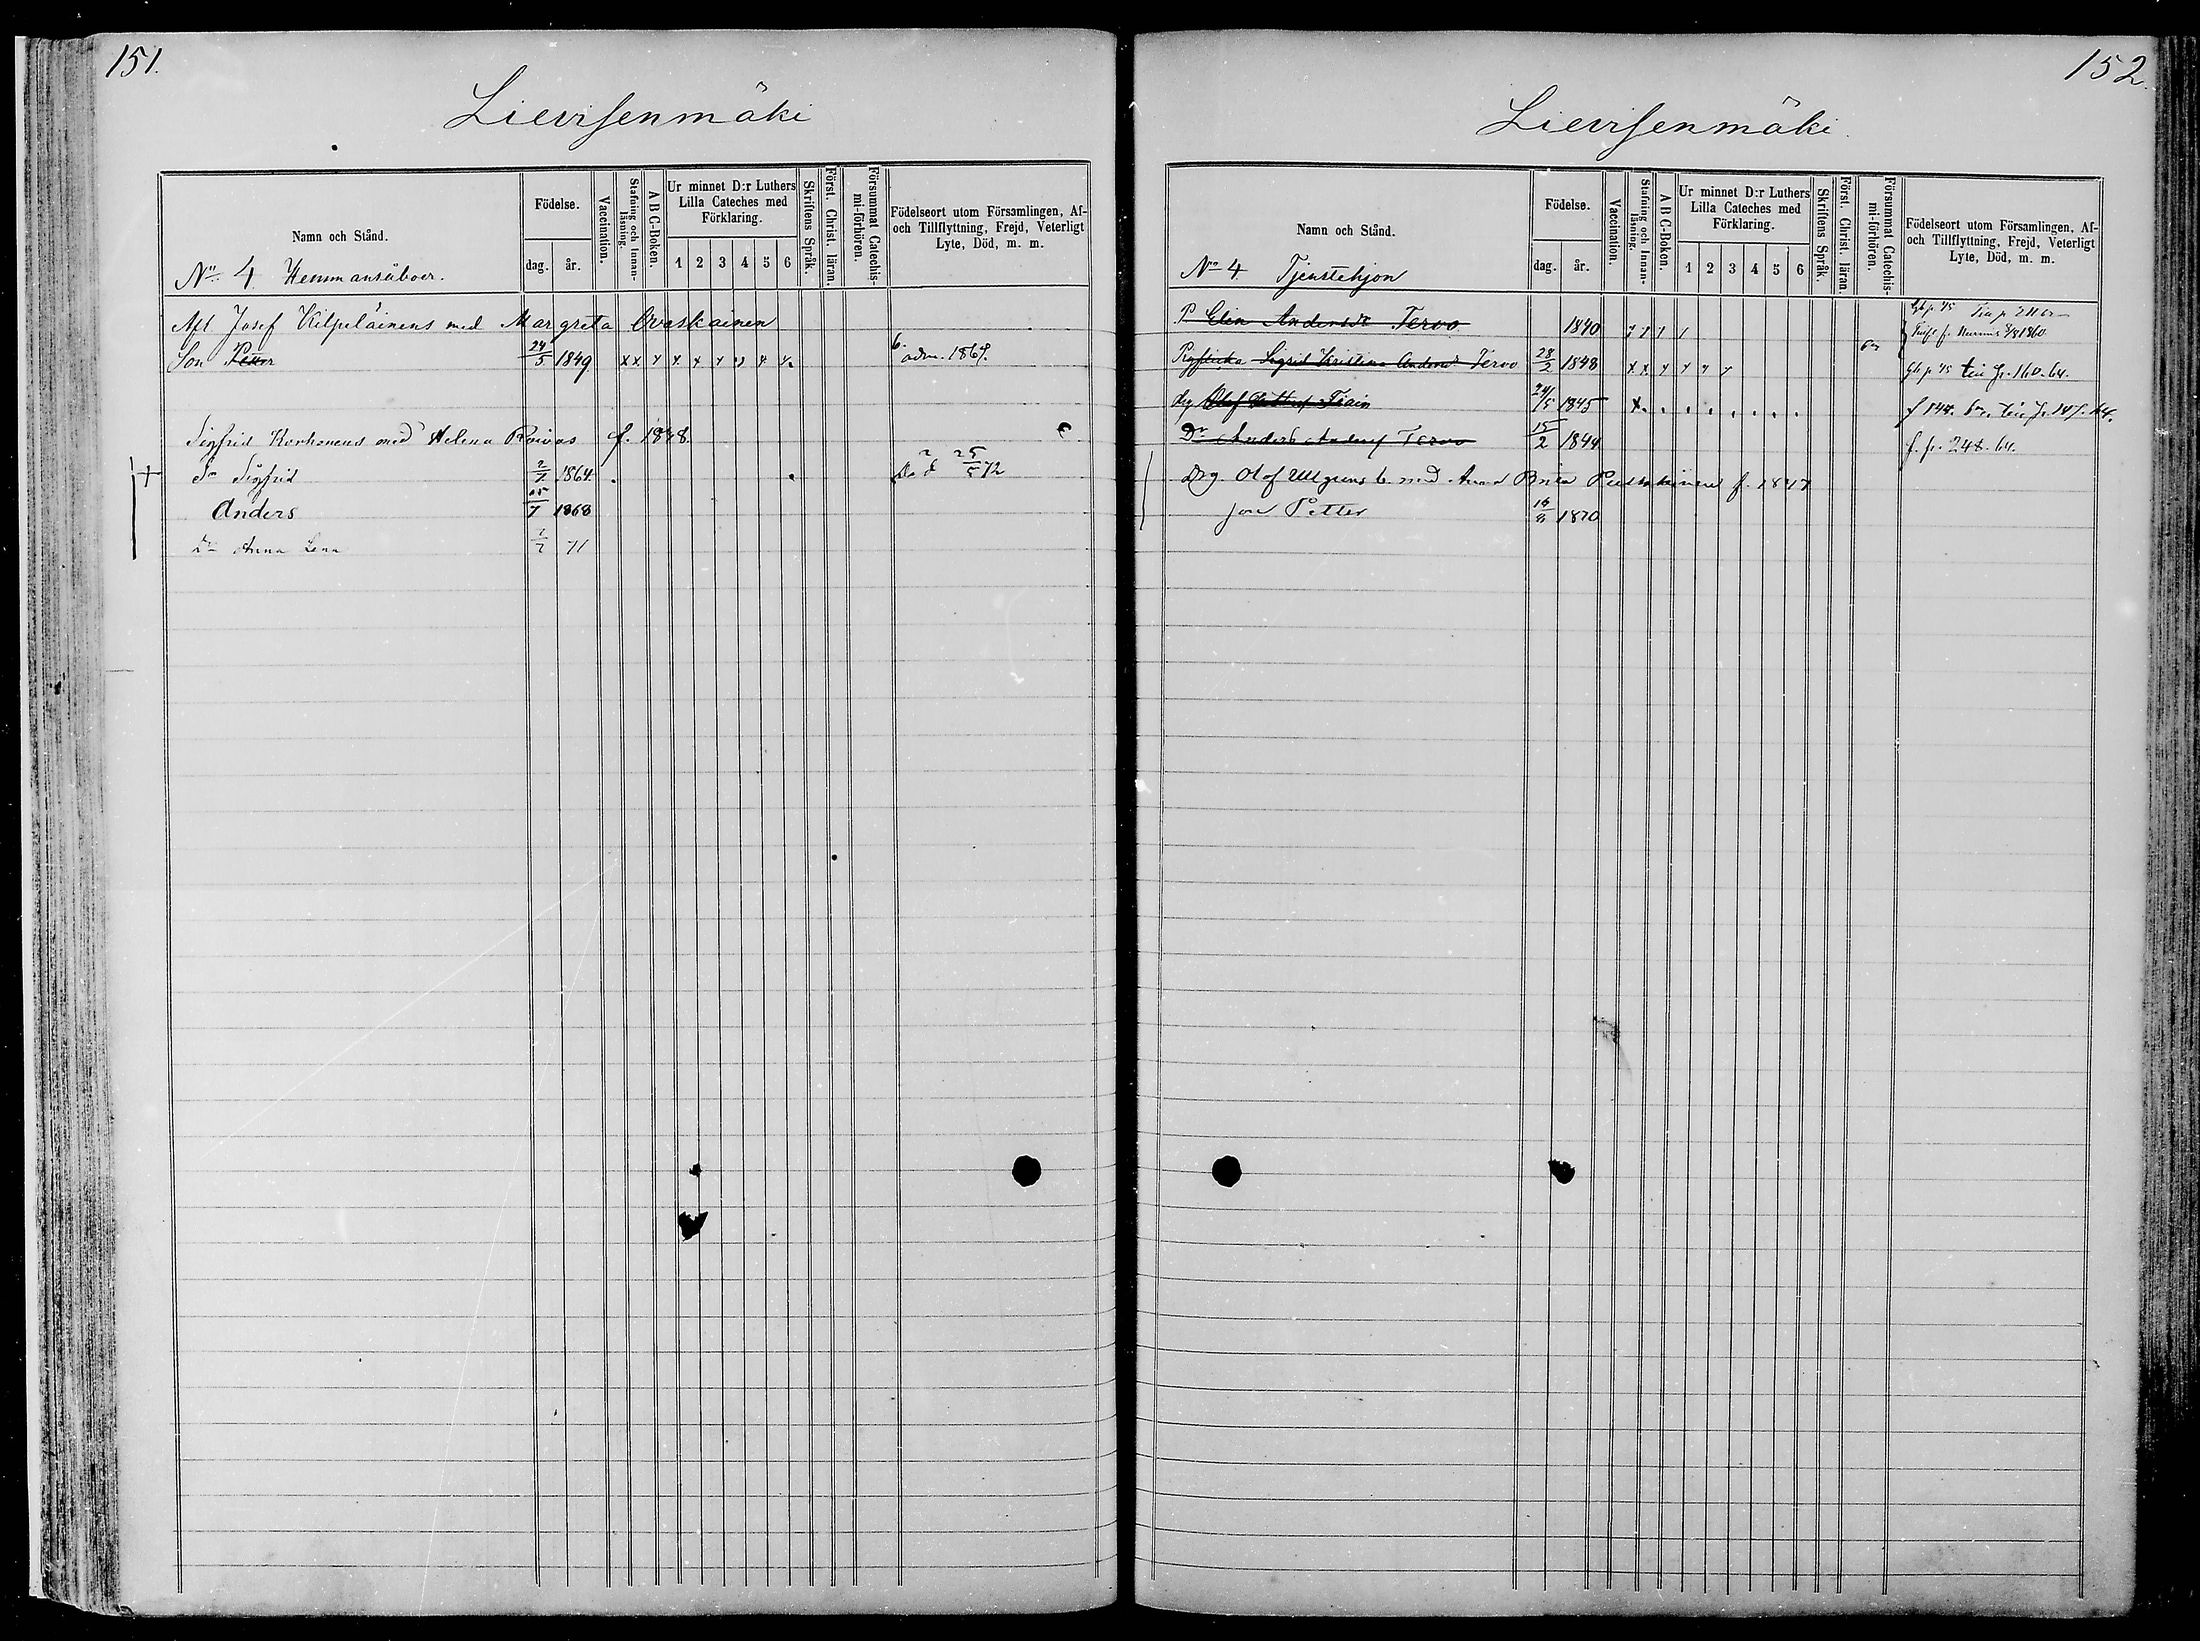 151.
Lievisenmäki
Namn och Stånd.
Födelse.
dag. år.
Vaccination.
Stafning och Innan-läsning.
A B C-Boken.
Ur minnet D:r Luthers Lilla Cateches med Förklaring.
1 2 3 4 5 6
Skriftens Språk.
Först. Christ. läran.
Försummat Catechis-mi-förhören.
Födelseort utom Församlingen, Af-
och Tillflyttning, Frejd, Veterligt
Lyte, Död, m. m.
No 4. Hemmansåboer.
Afl Josef Kilpeläinens med Margreta Ovaskainen
Son Petter 24/5 1849 adm. 1867.
Sigfrid Korhonens med Helena Roivas f. 1848.
+ Sn Sigfrid 2/7 1864. 25/5 72
Anders 25/7 1868
Dr Anna Lena 71
152.
Lievisenmäki.
Namn och Stånd.
Födelse.
dag. år.
Vaccination.
Stafning och Innan-läsning.
A B C-Boken.
Ur minnet D:r Luthers Lilla Cateches med Förklaring.
1 2 3 4 5 6
Skriftens Språk.
Först. Christ. läran.
Försummat Catechis-mi-förhören.
Födelseort utom Församlingen, Af-
och Tillflyttning, Frejd, Veterligt
Lyte, Död, m. m.
No 4 Tjenstehjon
P Elin Andersdr Tervo 1840
Sigrid Kristina Andersd Tervo 28/2 1848 till p. 160. 64.
drg Olof 24/5 1845 f 144.
Dr Anders Anderss Tervo 15/2 1844 f. p. 248. 64.
Drg. Olof med Anna Brita f. 1847
son Petter 1870